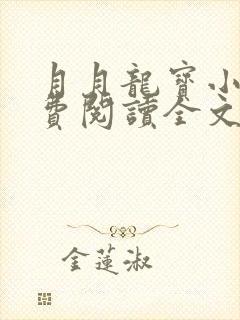 月月龍寶小
費閱讀全文
金蓮淑